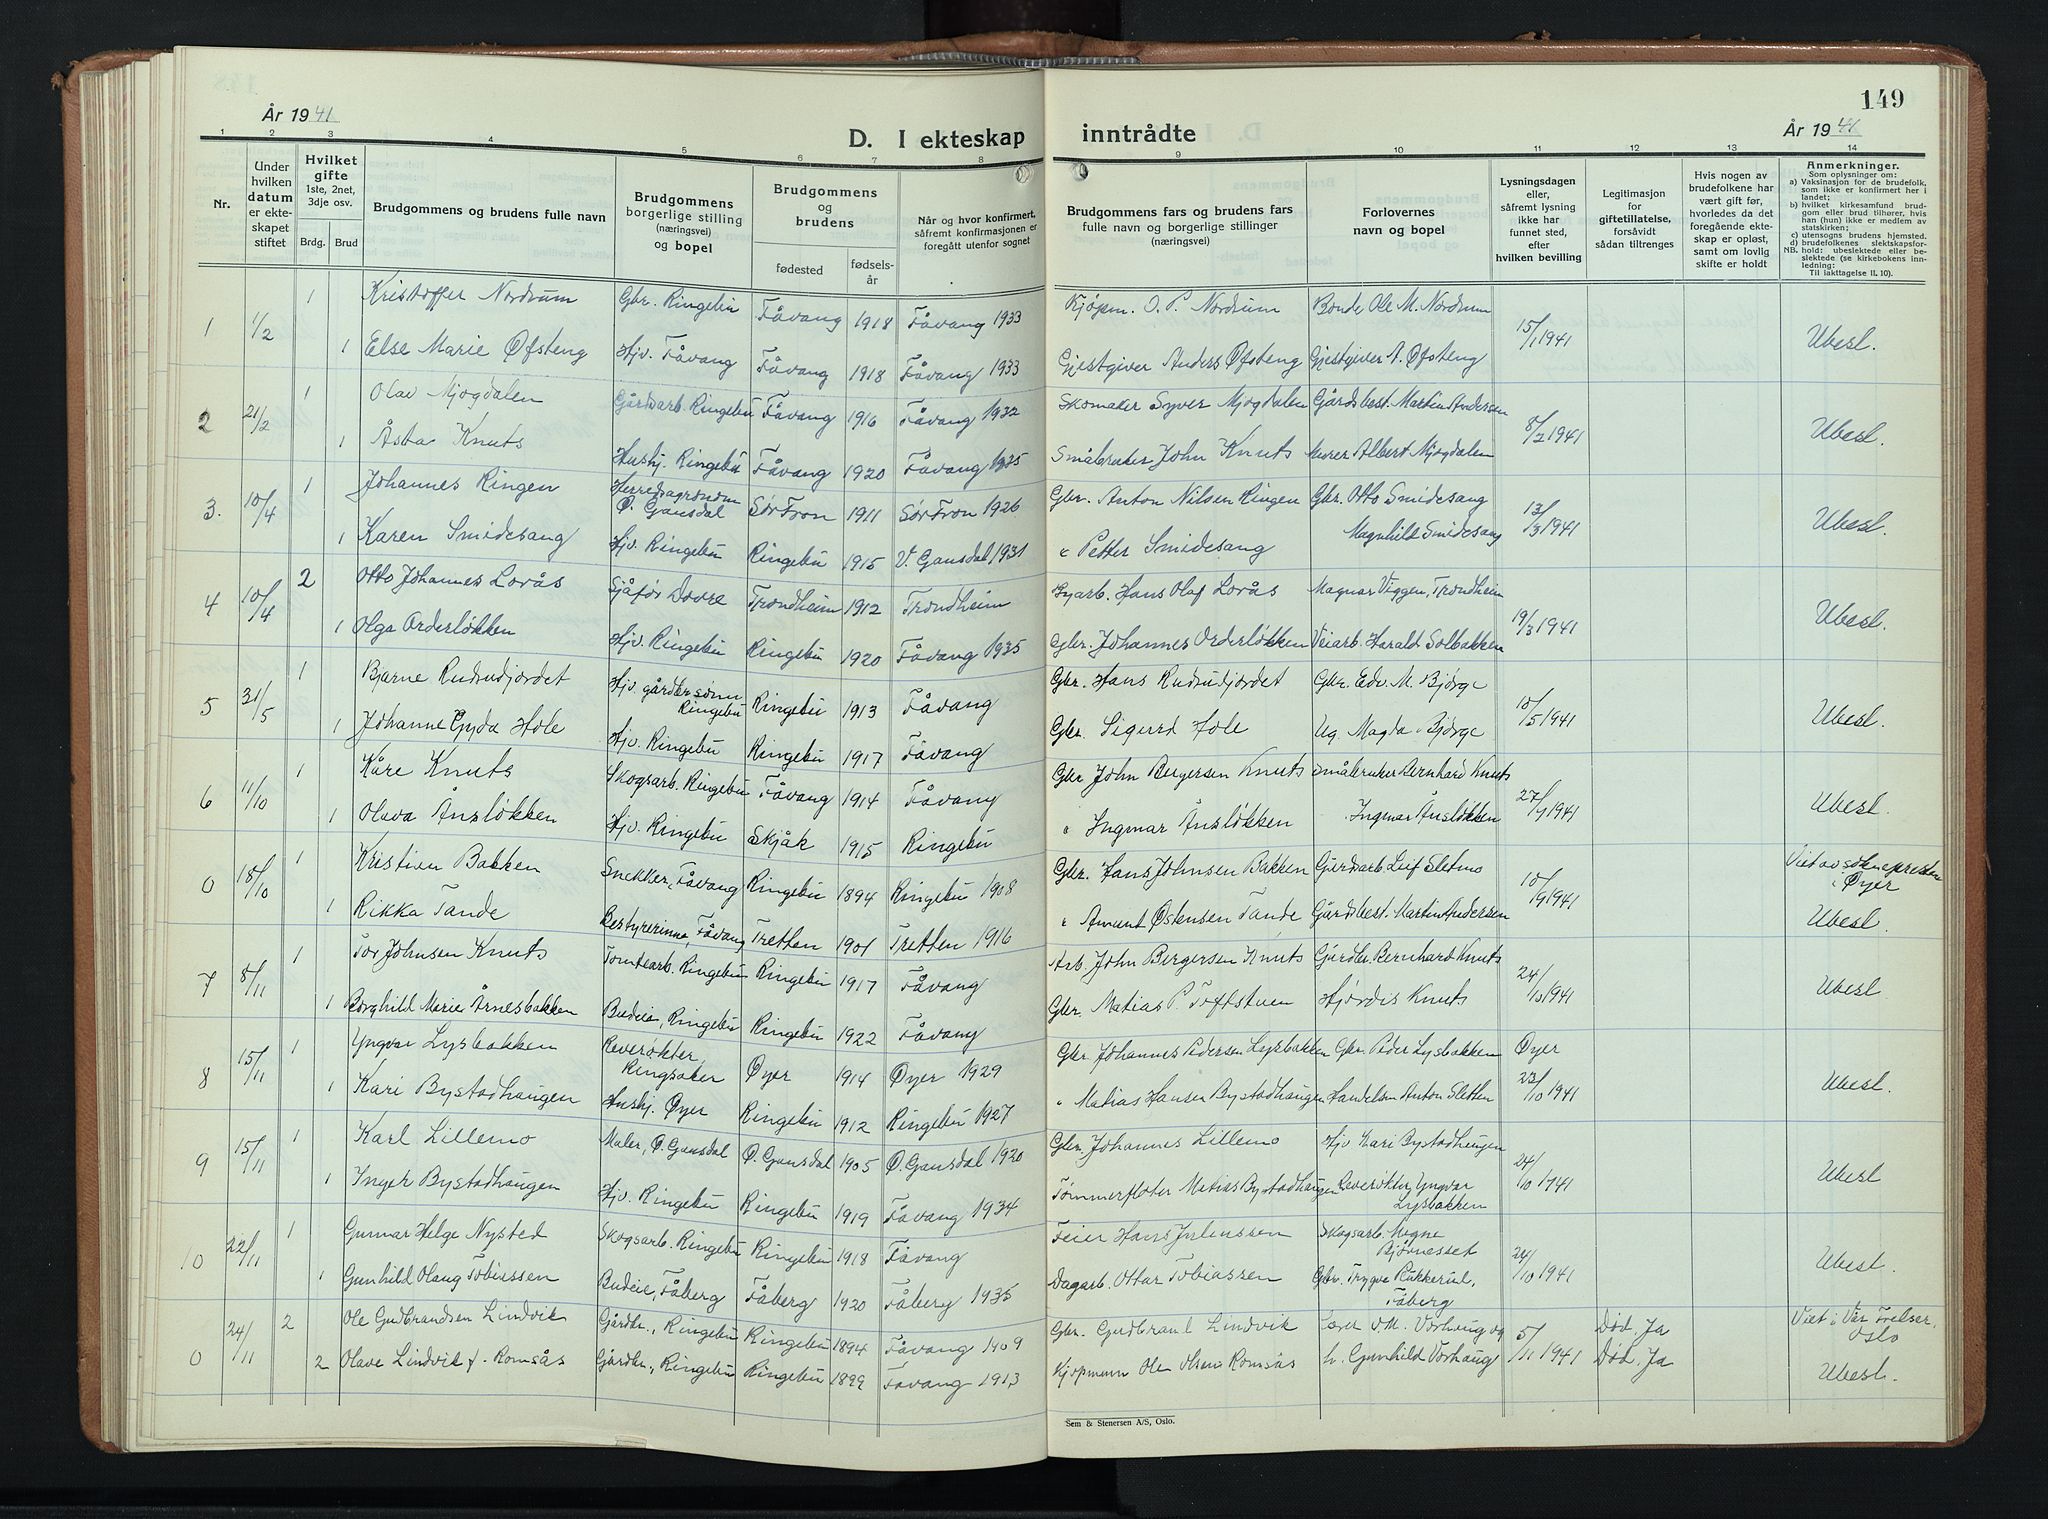 149
År 1941
D. I ekteskap inntrådte
År 1941
1 2 3 4 5 6 7 8 9 10 11 12 13 14
Nr.
Under hvilken datum er ekteskapet stiftet
Hvilket gifte 1ste, 2net, 3dje osv.
Brdg. Brud
Brudgommens og brudens fulle navn
Brudgommens borgerlige stilling (næringsvei) og bopel
Brudgommens og brudens
fødested
fødselsår
Når og hvor konfirmert, såfremt konfirmasjonen er foregått utenfor sognet
Brudgommens fars og brudens fars fulle navn og borgerlige stillinger (næringsvei)
Forlovernes navn og bopel
Lysningsdagen eller, såfremt lysning ikke har funnet sted, efter hvilken bevilling
Legitimasjon for giftetillatelse, forsåvidt sådan tiltrenges
Hvis nogen av brudefolkene har vært gift før, hvorledes da det foregående ekteskap er opløst, samt om lovlig skifte er holdt
Anmerkninger.
Som oplysninger om:
a) Vaksinasjon for de brudefolk, som ikke er konfirmert her i landet;
b) hvilket kirkesamfund brudgom eller brud tilhører, hvis han (hun) ikke er medlem av statskirken;
c) utensogns brudens hjemsted.
d) brudefolkenes slektskapsforhold: ubeslektede eller beslektede (se kirkebokens innledning:
NB. Til iakttagelse II. 10).
1 1/2 1 Kristoffer Nordrum Gbr. Ringebu Fåvang 1918 Fåvang 1933 Kjøpm. O. P. Nordrum Bonde Ole M. Nordrum 15/1 1941 Ubesl.
1 Else Marie Øfsteng Hjv. Fåvang Fåvang 1918 Fåvang 1933 Gjestgiver Anders Øfsteng Gjestgiver A. Øfsteng
2 21/2 1 Olav Mjogdalen Gårdsarb. Ringebu Fåvang 1916 Fåvang 1932 Skomaker Syver Mjogdalen Gårdsbest. Martin Andersen 8/2 1941 Ubesl.
1 Åsta Knuts Hushj. Ringebu Fåvang 1920 Fåvang 1935 Småbruker John Knuts Murer Albert Mjogdalen
3. 10/4 1 Johannes Ringen Herredsagronom Ø. Gausdal Sør Fron 1911 Sør Fron 1926 Gbr. Anton Nilsen Ringen Gbr. Otto Smidesang 13/3 1941 Ubesl.
1 Karen Smidesang Hjv. Ringebu Ringebu 1915 V. Gausdal 1931 " Petter Smidesang Magnhild Smidesang
4 10/4 2 Otto Johannes Lorås Sjåfør Dovre Trondheim 1912 Trondheim Hans Olaf Lorås Magnar Viggen, Trondheim 19/3 1941 Ubesl.
1 Olga Orderløkken Hjv. Ringebu Ringebu 1920 Fåvang 1935 Gbr. Johannes Orderløkken Veiarb. Harald Solbakken
5 31/5 1 Bjarne Rudsudjordet Hjv. gårdbr.sønn Ringebu Ringebu 1913 Fåvang Gbr. Hans Rudsudjordet Gbr. Edv. M. Bjørge 10/5 1941 Ubesl.
1 Johanne Gyda Hole Hjv. Ringebu Ringebu 1917 Fåvang Gbr. Sigurd Hole Ug. Magda Bjørge
6 11/10 1 Kåre Knuts Skogsarb. Ringebu Fåvang 1914 Fåvang Gbr. John Bergersen Knuts Småbruker Bernhard Knuts 27/9 1941 Ubesl.
1 Olava Ånsløkken Hjv. Ringebu Skjåk 1915 Ringebu " Ingmar Ånsløkken Ingmar Ånsløkken
0 18/10 1 Kristian Bakken Snekker, Fåvang Ringebu 1894 Ringebu 1908 Gbr. Hans Johnsen Bakken Gårdsarb. Leif Sletmo 10/9 1941 Viet av soknepresten i Øyer
1 Rikka Tande Bestyrerinne, Fåvang Tretten 1901 Tretten 1916 " Amunt Østensen Tande Gårdsbest. Martin Andersen Ubesl.
7 8/11 1 Tor Johnsen Knuts Tomtearb. Ringebu Ringebu 1917 Fåvang Arb. John Bergersen Knuts Gårdbr. Bernhard Knuts 24/10 1941 Ubesl
1 Borghild Marie Årnesbakken Budeie, Ringebu Ringebu 1922 Fåvang Gbr. Matias P. Toftstuen Hjørdis Knuts
8 15/11 1 Yngvar Lysbakken Reverøkter, Ringsaker Øyer 1914 Øyer 1929 Gbr. Johannes Pedersen Lysbakken Gbr. Peder Lysbakken Øyer 23/10 1941 Ubesl.
1 Kari Bystadhaugen Hushj. Øyer Ringebu 1912 Ringebu 1927 " Matias Hansen Bystadhaugen Handelsm Anton Sletten
9 15/11 1 Karl Lillemo Maler, Ø. Gausdal Ø. Gausdal 1905 Ø. Gausdal 1920 Gbr. Johannes Lillemo Hjv Kari Bystadhaugen 24/10 1941 Ubesl
1 Inger Bystadhaugen Hjv. Ringebu Ringebu 1919 Fåvang 1934 Tømmerfløter Matias Bystadhaugen Reverøkter Yngvar Lysbakken
10 22/11 1 Gunnar Helge Nysted Skogsarb. Ringebu Ringebu 1918 Fåvang Feier Hans Juliussen Skogsarb. Mogne Bjørnesset 24/10 1941 Ubesl.
1 Gunhild Olaug Tobiassen Budeie, Fåberg Fåberg 1920 Fåberg 1935 Dagarb. Ottar Tobiassen Gbr. Trygve Rukkerud, Fåberg
0 24/11 2 Ole Gudbrandsen Lindvik Gårdbr., Ringebu Ringebu 1894 Fåvang 1909 Gbr. Gudbrand Lindvik O. M. Vorhaug og 5/11 1941 Død. Ja Viet i Vår Frelser, Oslo
2 Olave Lindvik f. Romsås Gårdbr., Ringebu Ringebu 1899 Fåvang 1913 Kjøpmann Ole Olsen Romsås h. Gunhild Vorhaug Død. Ja Ubesl.
Sem & Stenersen A/S, Oslo.